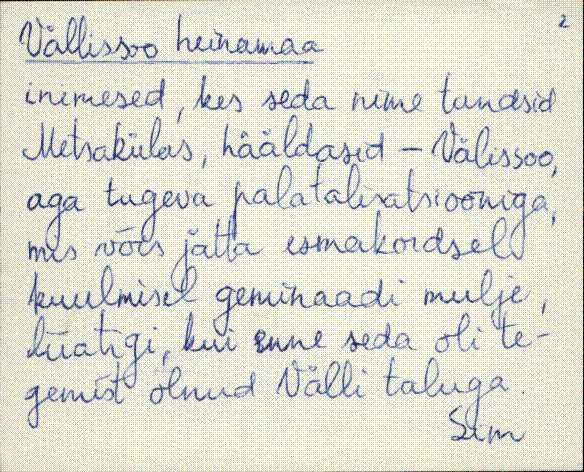 2
Vällissoo heinamaa
inimesed, kes seda nime tundsid
Metsakülas, hääldasid – Välissoo,
aga tugeva palatalisatsiooniga,
mis võis jätta esmakordsel
kuulmisel geminaadi mulje,
liiatigi, kui enne seda oli te-
gemist olnud Välli taluga.
Sim